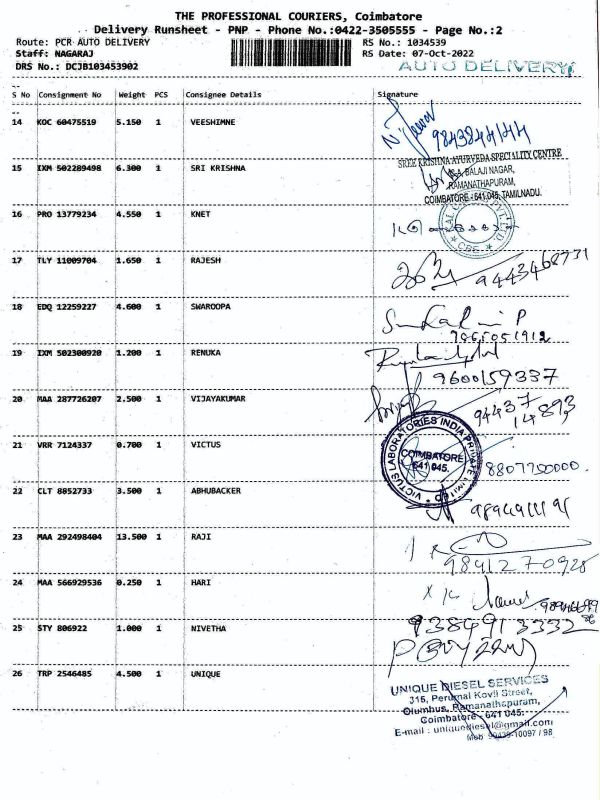 THE PROFESSIONAL COURIERS, Coimbatore
Delivery Runsheet - PNP - Phone No.:0422-3505555 - Page No.:2
Route: PCR AUTO DELIVERY RS No.: 1034539
Staff: NAGARAJ RS Date: 07-Oct-2022
DRS No.: DCJB103453902 AUTO DELIVERY
S No Consignment No Weight PCS Consignee Details Signature
14 KOC 60475519 5.150 1 VEESHIMNE
9843844144
15 IXM 502289498 6.300 1 SRI KRISHNA
SREE KRISHNA AYURVEDA SPECIALITY CENTRE
BALAJI NAGAR,
RAMANATHAPURAM,
COIMBATORE - 641 045, TAMILNADU.
16 PRO 13779234 4.550 1 KNET
CBE
17 TLY 11009704 1.650 1 RAJESH
9443468731
18 EDQ 12259227 4.600 1 SWAROOPA
9865051912
19 IXM 502300920 1.200 1 RENUKA
9600159337
20 MAA 287726207 2.500 1 VIJAYAKUMAR
94437
14893
21 VRR 7124337 0.700 1 VICTUS
VICTUS LABORATORIES INDIA PRIVATE LIMITED
COIMBATORE
641 045.
8807750000.
22 CLT 8852733 3.500 1 ABHUBACKER
23 MAA 292498404 13.500 1 RAJI
9841270928
24 MAA 566929536 0.250 1 HARI
25 STY 806922 1.000 1 NIVETHA
9384913332
26 TRP 2546485 4.500 1 UNIQUE
UNIQUE DIESEL SERVICES
315, Perumal Kovil Street,
Olumbus, Ramanathapuram,
Coimbatore - 641 045.
E-mail : uniquediesel@gmail.com
Mob 90439-10097 / 98